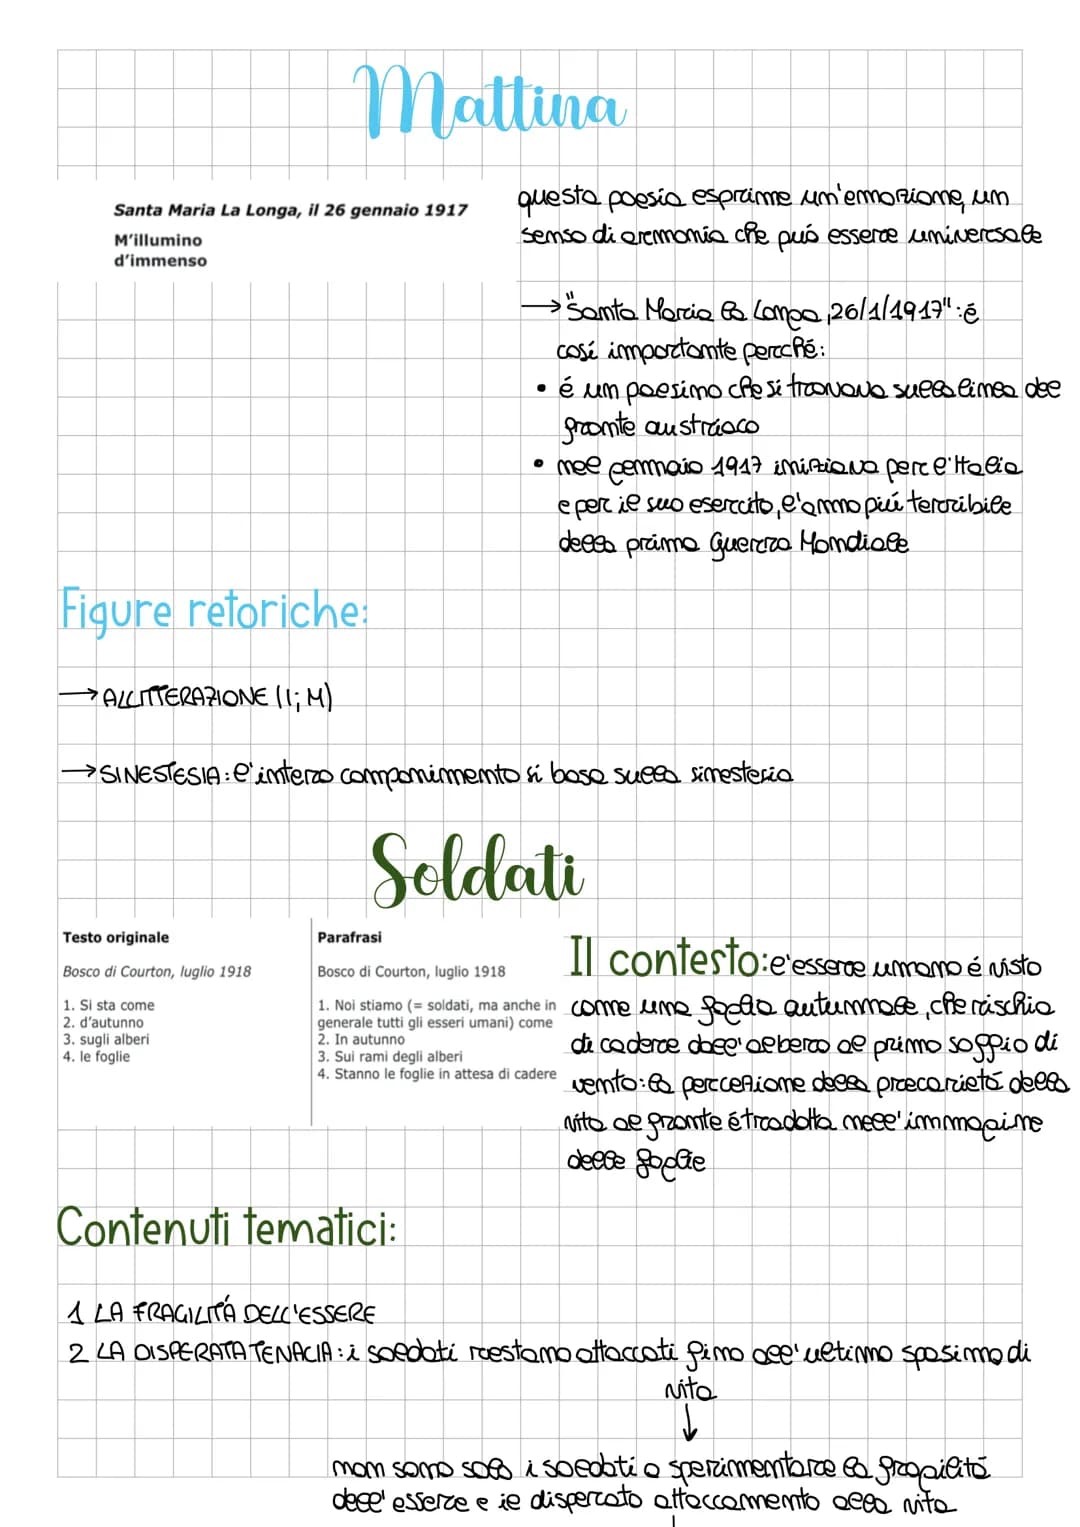 Mattina
Santa Maria La Longa, il 26 gennaio 1917
M'illumino
d'immenso
questa poesia esprime un'emozione, un
senso di armonia che puó essere universale
→ "Santa Maria la Longa, 26/1/1917": é
cosí importante perché:
• é un paesino che si trovava sulla linea del
fronte austriaco
• nel gennaio 1917 iniziava per l'Italia
e per il suo esercito, l'anno piú terribile
della prima Guerra Mondiale
Figure retoriche:
→ ALLITTERAZIONE (I; M)
→ SINESTESIA: l'intero componimento si basa sulla sinestesia
Soldati
Testo originale
Bosco di Courton, luglio 1918
1. Si sta come
2. d'autunno
3. sugli alberi
4. le foglie
Parafrasi
Bosco di Courton, luglio 1918
1. Noi stiamo (= soldati, ma anche in
generale tutti gli esseri umani) come
2. In autunno
3. Sui rami degli alberi
4. Stanno le foglie in attesa di cadere
Il contesto: l'essere umano é visto
come una foglia autunnale, che rischia
di cadere dall'albero al primo soffio di
vento: la percezione della precarietá della
vita al fronte é tradotta nell'immagine
delle foglie
Contenuti tematici:
1 LA FRAGILITÁ DELL'ESSERE
2 LA DISPERATA TENACIA: i soldati restano attaccati fino all'ultimo spasimo di
vita
↓
non sono solo i soldati a sperimentare la fragilitá
dell'essere e il disperato attaccamento alla vita